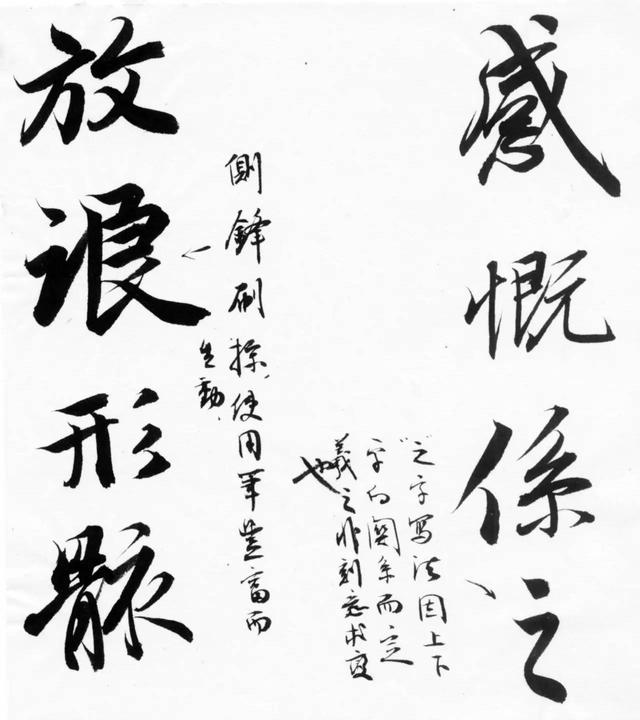 感慨係之
"之"字寫法因上下
字的関系而定
羲之非刻意求變
也
側鋒刷掠,使用筆豊富而
生動.
放浪形骸